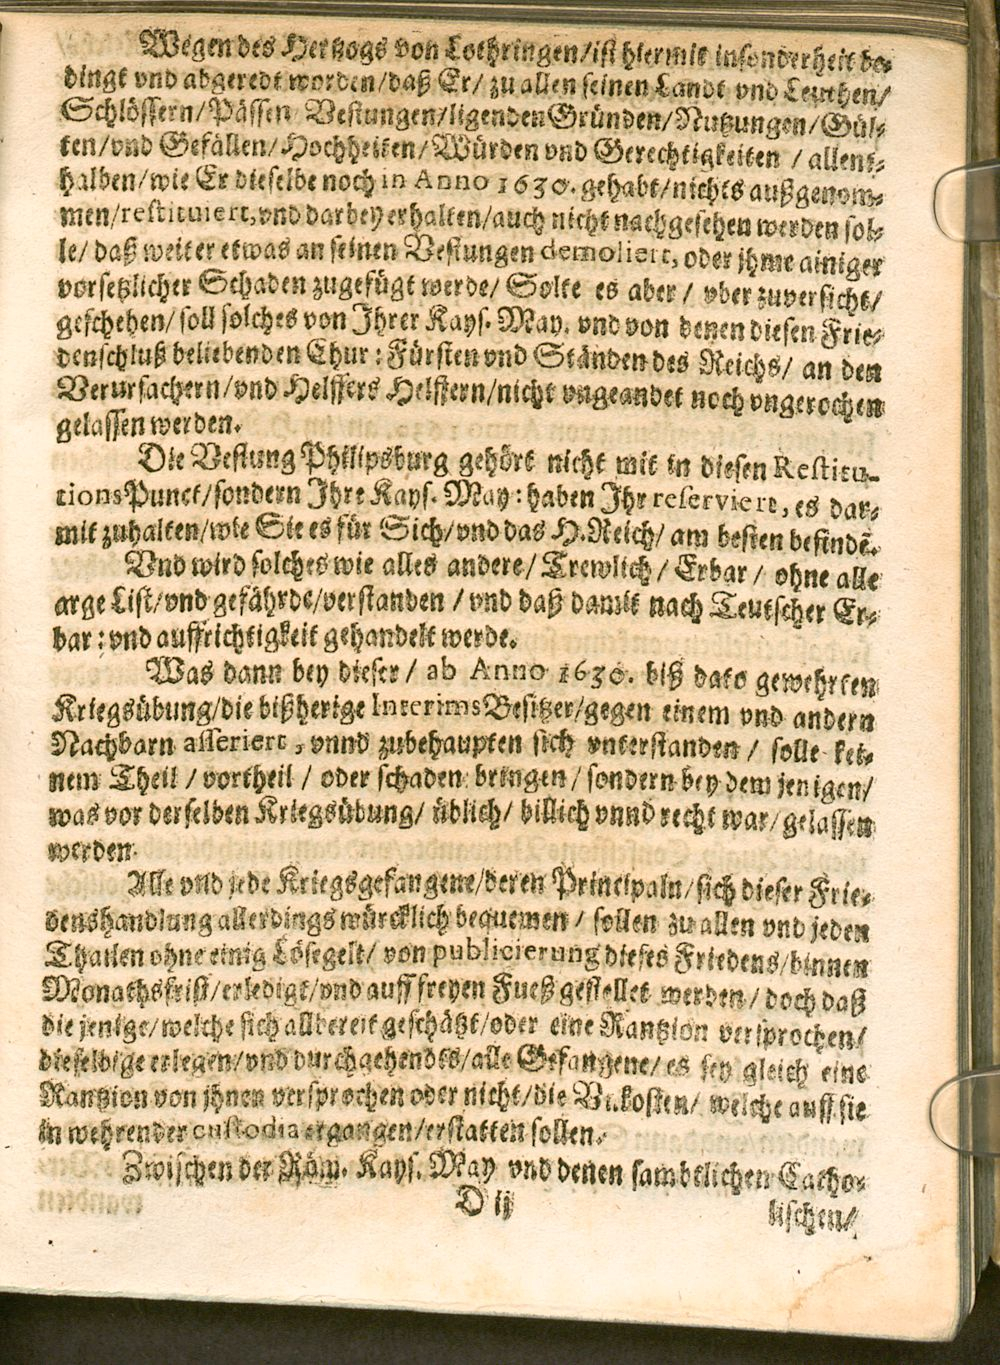 Wegen des Hertzogs von Lothringen/ist hiermit insonderheit be-
dingt vnd abgeredt worden/daß Er/ zu allen seinen Landt vnd Leuthen/
Schlössern/Pässen Vestungen/ligenden Gründen/Nutzungen/Gül-
ten/vnd Gefällen/Hochheiten/Würden vnd Gerechtigkeiten / allent-
halben/wie Er dieselbe noch in Anno 1630. gehabt/nichts außgenom-
men/restituiert, vnd darbey erhalten/auch nicht nachgesehen werden sol-
le/ daß weiter etwas an seinen Vestungen demoliert, oder jhme ainiger
vorsetzlicher Schaden zugefügt werde/ Solte es aber / vber zuversicht/
geschehen/ soll solches von Ihrer Kays. May. vnd von denen diesen Frie-
denschluß beliebenden Chur: Fürsten vnd Ständen des Reichs/ an den
Verursachern/vnd Helffers Helffern/nicht vngeandet noch vngerochen
gelassen werden.
Die Vestung Philipsburg gehört nicht mit in diesen Restitu-
tions Punct/sondern Ihre Kays. May: haben Ihr reserviert, es dar-
mit zuhalten/wie Sie es für Sich/vnd das H. Reich/ am besten befindē.
Vnd wird solches wie alles andere/ Trewlich / Erbar / ohne alle
arge List/vnd gefährde/verstanden / vnd daß damit nach Teutscher Er-
bar: vnd auffrichtigkeit gehandelt werde.
Was dann bey dieser / ab Anno 1630. biß dato gewehrten
Kriegsübung/die bißherige Interims Besitzer/gegen einem vnd andern
Nachbarn asseriert, vnnd zubehaupten sich vnterstanden / solle kei-
nem Theil / vortheil / oder schaden bringen / sondern bey dem jenigen/
was vor derselben Kriegsübung/ üblich/ billich vnnd recht war/gelassen
werden.
Alle vnd jede Kriegsgefangene/deren Principaln/sich dieser Frie-
denshandlung allerdings würcklich bequemen / sollen zu allen vnd jeden
Thailen ohne einig Lösegelt/ von publicierung dieses Friedens/binnen
Monathsfrist/erledigt/vnd auff freyen Fueß gestellet werden / doch daß
die jenige/welche sich allbereit geschätzt/oder eine Rantzion versprochen/
dieselbige erlegen/vnd durchgehendes/alle Gefangene/es sey gleich eine
Rantzion von jhnen versprochen oder nicht/die Vnkosten/ welche auff sie
in wehrender custodia ergangen/erstatten sollen.
Zwischen der Röm. Kays. May vnd denen sambtlichen Catho-
D ij
lischen/